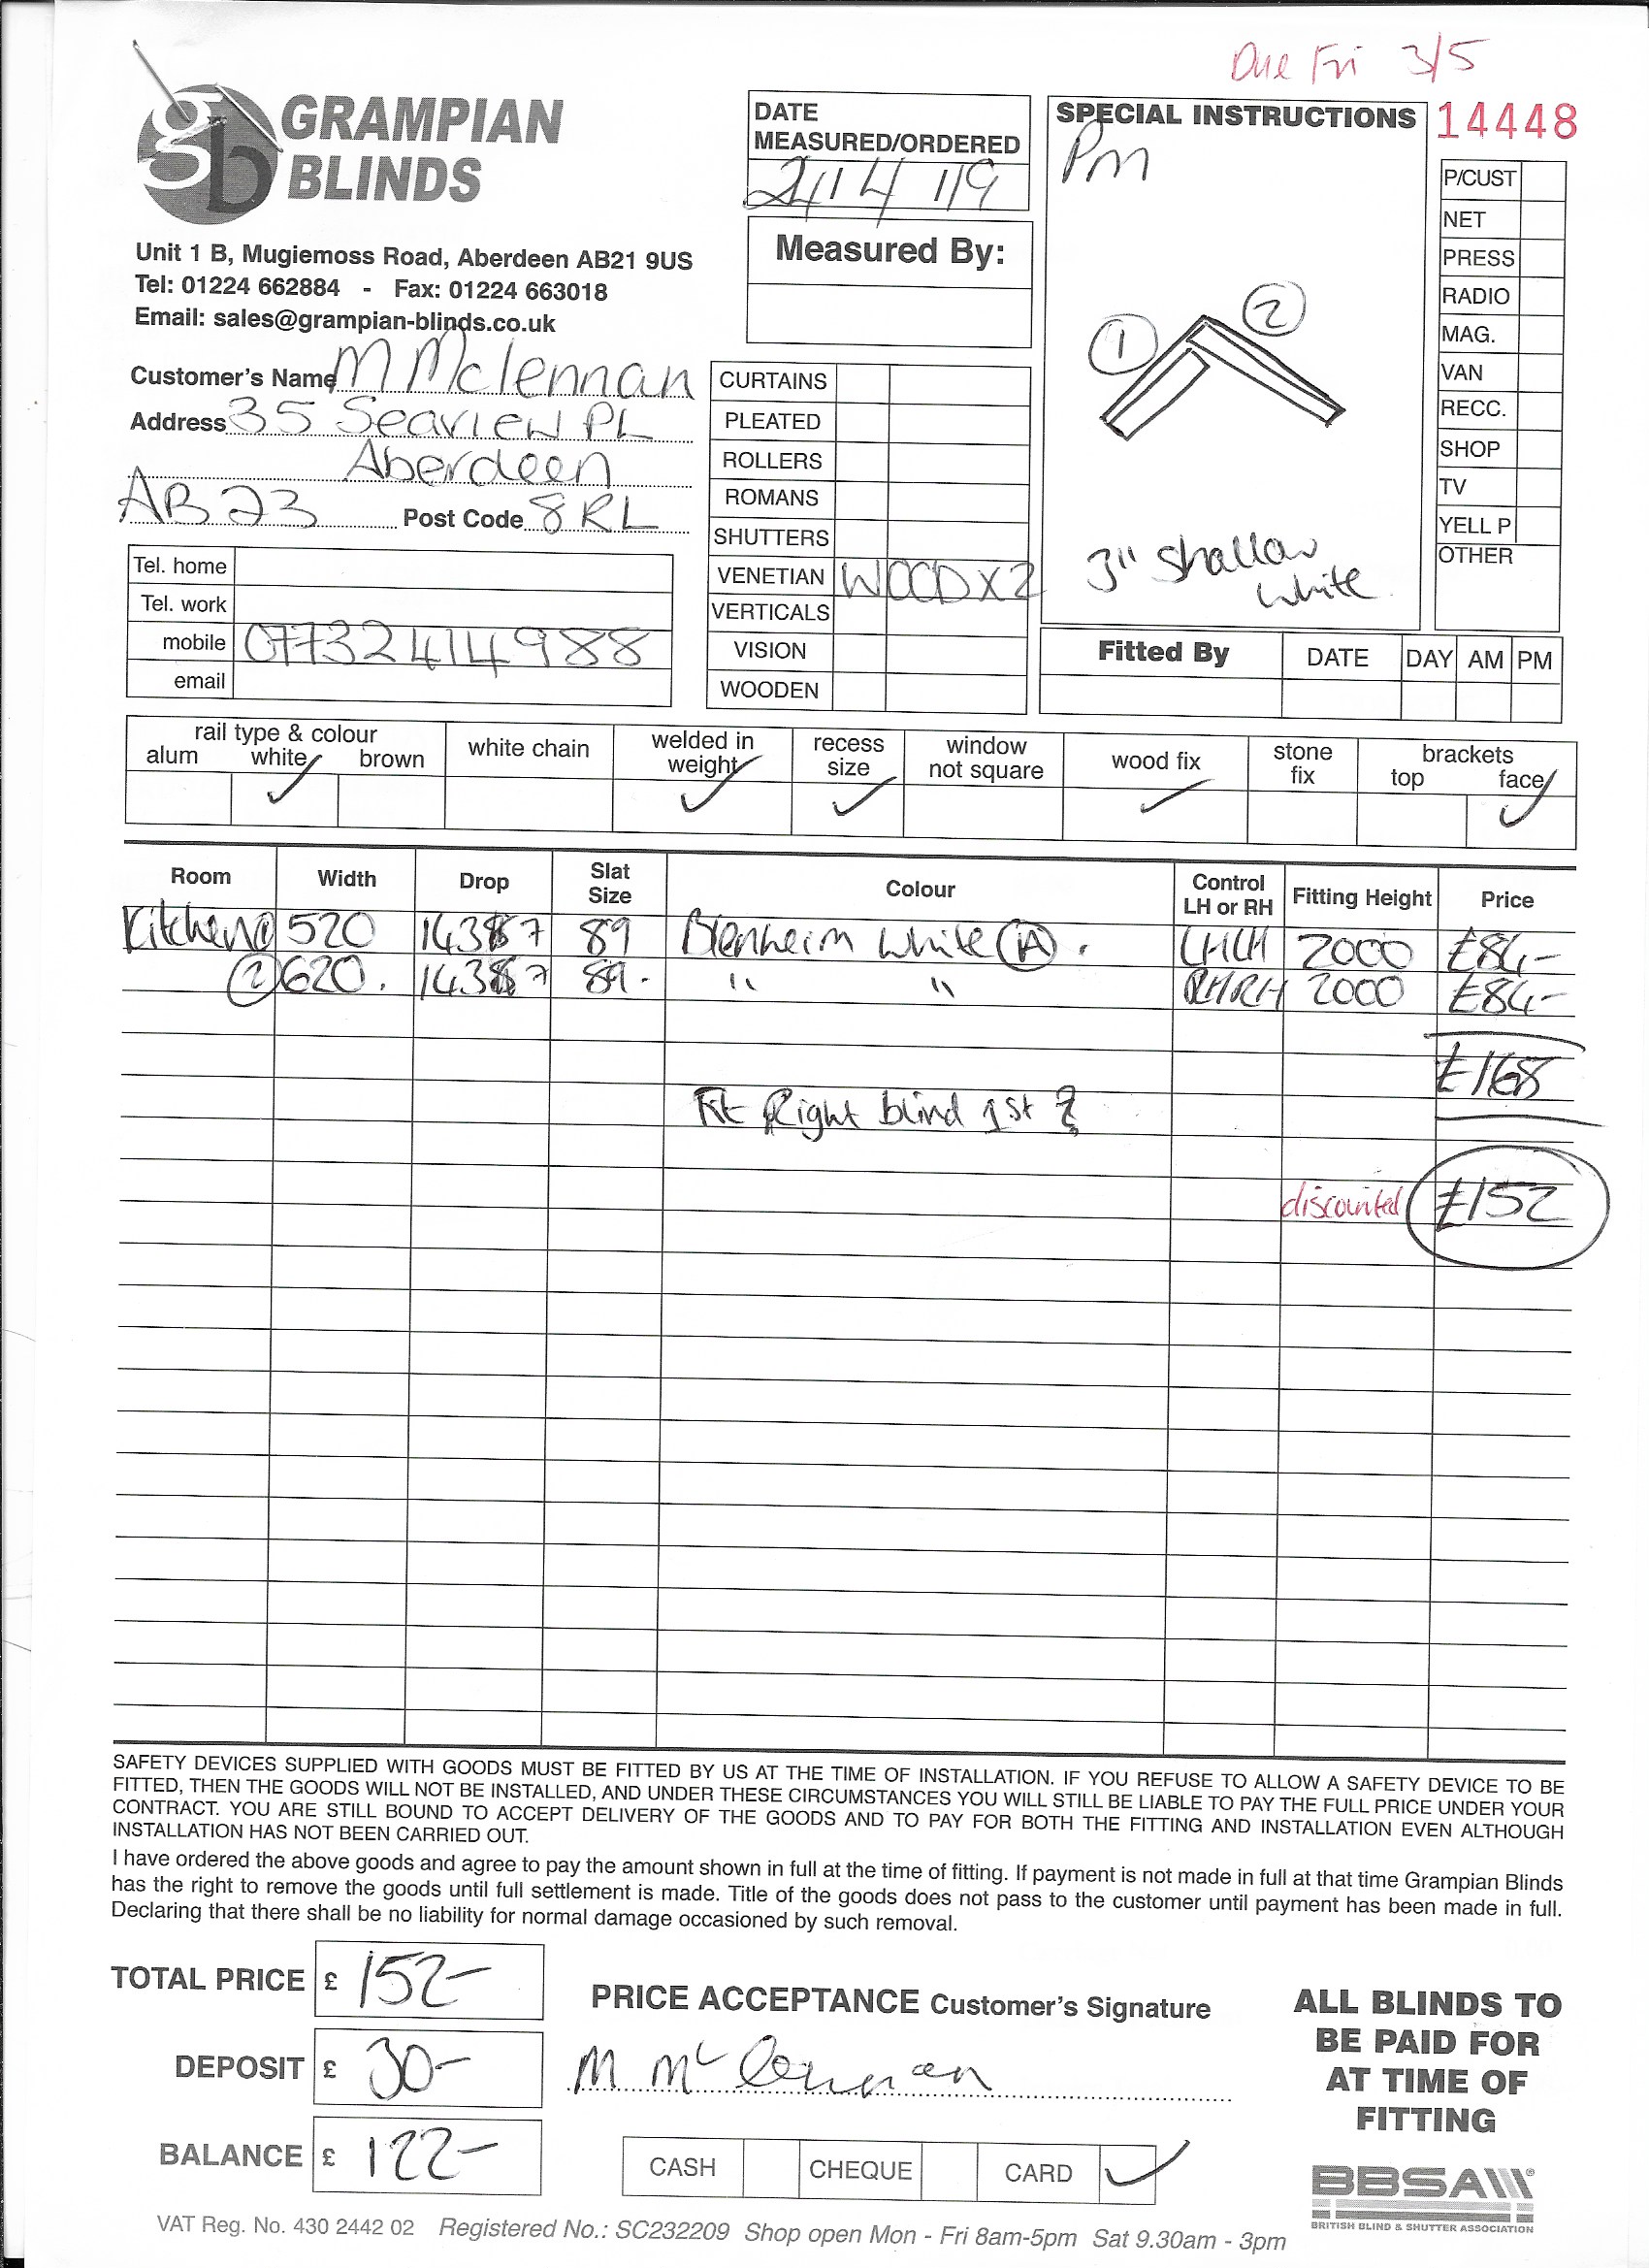 Due Fri 3/5
GRAMPIAN
BLINDS
Unit 1 B, Mugiemoss Road, Aberdeen AB21 9US
Tel: 01224 662884 - Fax: 01224 663018
Email: sales@grampian-blinds.co.uk
DATE
MEASURED/ORDERED
/4/19
Measured By:
SPECIAL INSTRUCTIONS
14448
Pm
1
2
3" Shallow
white
P/CUST
NET
PRESS
RADIO
MAG.
VAN
RECC.
SHOP
TV
YELL P
OTHER
Customer's Name M Mclennan
Address 35 Seaview PL
Aberdeen
AB23 Post Code 8RL
Tel. home
Tel. work
mobile 07732414988
email
CURTAINS
PLEATED
ROLLERS
ROMANS
SHUTTERS
VENETIAN WOOD X2
VERTICALS
VISION
WOODEN
Fitted By DATE DAY AM PM
rail type & colour
alum white brown
white chain
welded in
weight
recess
size
window
not square
wood fix
stone
fix
brackets
top face
Room Width Drop Slat Size Colour Control LH or RH Fitting Height Price
Kitchen 1 520 1437 89 Blenheim White A. LHLH 2000 £84-
2 620. 1437 89. " " RHRH 2000 £84-
£168
Fit Right blind 1st
discounted £152
SAFETY DEVICES SUPPLIED WITH GOODS MUST BE FITTED BY US AT THE TIME OF INSTALLATION. IF YOU REFUSE TO ALLOW A SAFETY DEVICE TO BE
FITTED, THEN THE GOODS WILL NOT BE INSTALLED, AND UNDER THESE CIRCUMSTANCES YOU WILL STILL BE LIABLE TO PAY THE FULL PRICE UNDER YOUR
CONTRACT. YOU ARE STILL BOUND TO ACCEPT DELIVERY OF THE GOODS AND TO PAY FOR BOTH THE FITTING AND INSTALLATION EVEN ALTHOUGH
INSTALLATION HAS NOT BEEN CARRIED OUT.
I have ordered the above goods and agree to pay the amount shown in full at the time of fitting. If payment is not made in full at that time Grampian Blinds
has the right to remove the goods until full settlement is made. Title of the goods does not pass to the customer until payment has been made in full.
Declaring that there shall be no liability for normal damage occasioned by such removal.
TOTAL PRICE £ 152-
DEPOSIT £ 30-
BALANCE £ 122-
PRICE ACCEPTANCE Customer's Signature
M McLennan
CASH CHEQUE CARD
ALL BLINDS TO
BE PAID FOR
AT TIME OF
FITTING
BBSA
BRITISH BLIND & SHUTTER ASSOCIATION
VAT Reg. No. 430 2442 02 Registered No.: SC232209 Shop open Mon - Fri 8am-5pm Sat 9.30am - 3pm